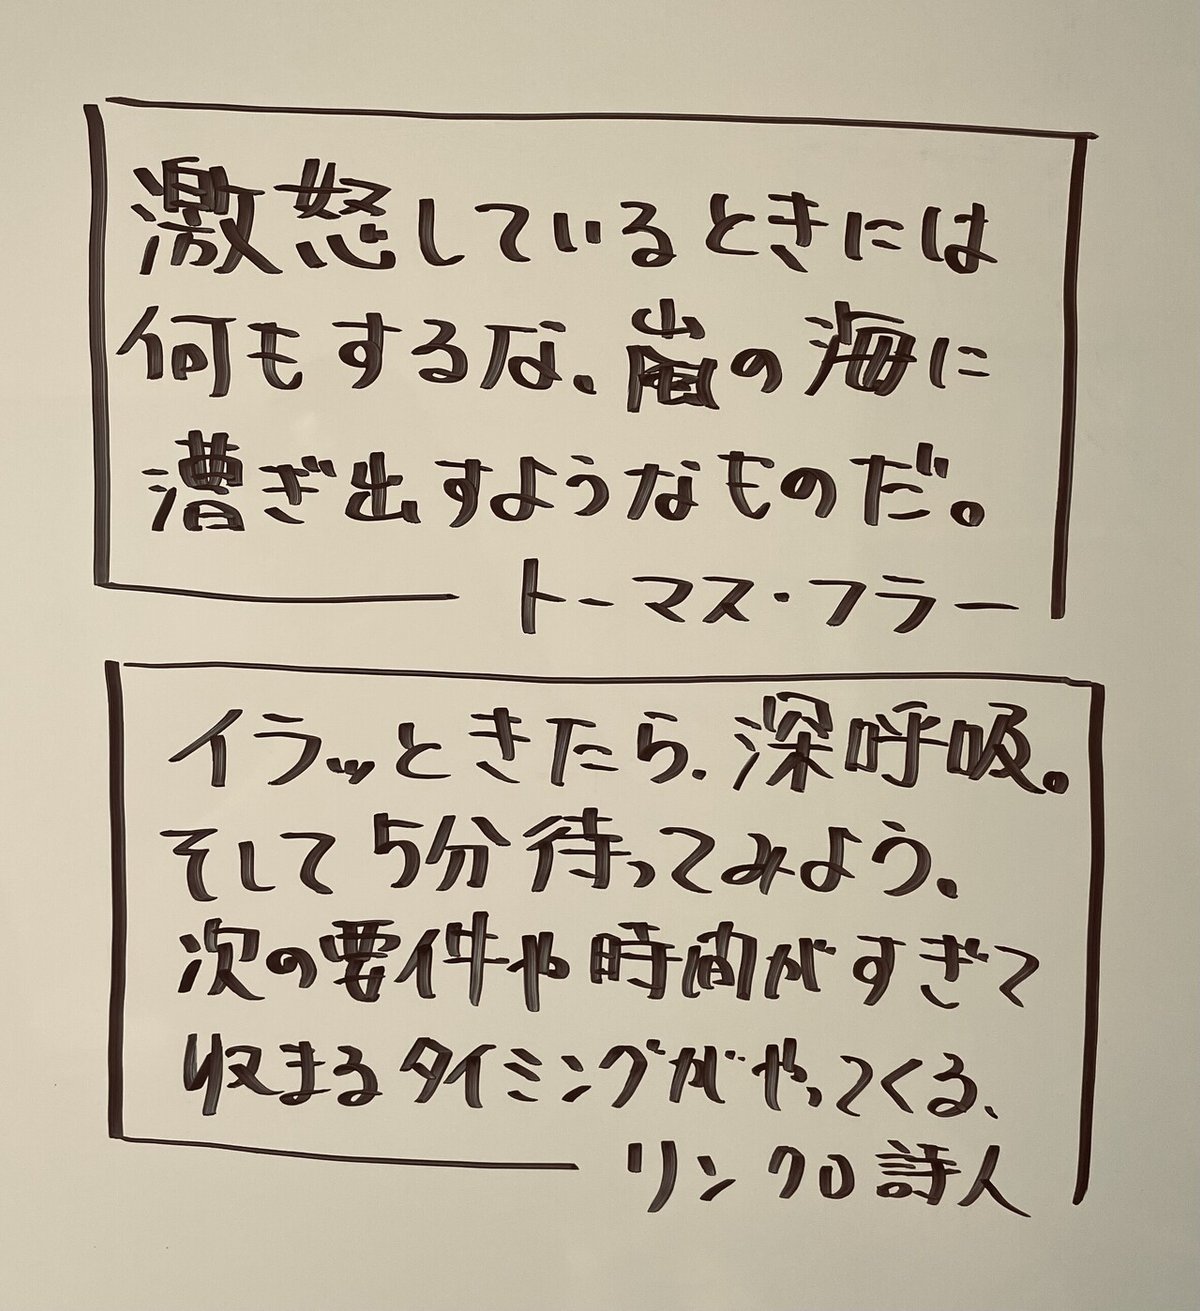 激怒しているときには
何もするな、嵐の海に
漕ぎ出すようなものだ。
トーマス・フラー
イラッときたら、深呼吸。
そして5分待ってみよう。
次の要件や時間がすぎて
収まるタイミングがやってくる、
リンクロ詩人